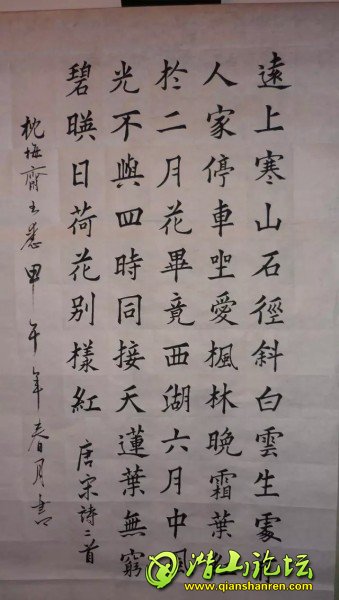 遠上寒山石徑斜白雲生處
人家停車坐愛楓林晚霜葉
扵二月花畢竟西湖六月中風
光不與四時同接天蓮葉無窮
碧暎日荷花别樣紅 唐宋詩二首
枕梅齋主 甲午年春月書
潜山论坛
www.qianshanren.com